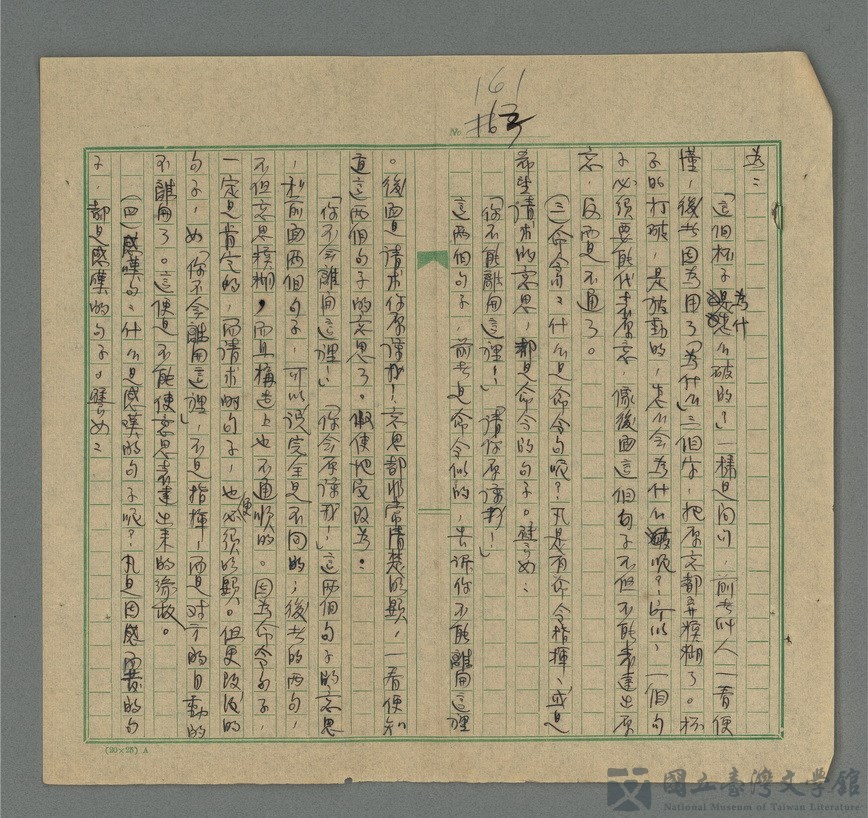 161
No.
為：
「這個杯子為什么破的」一樣是問句，前者叫人一看便
懂，後者因為用了「為什么」三個字，把原意都弄模糊了。杯
子的打破，是被動的，怎么会為什么破呢？所以，一個句
子必須要能代表原意，像後面這個句子不但不能表達出原
意，反而是不通了。
(三)命令句：什么是命令句呢？凡是有命令指揮、或是
希望請求的意思，都是命令的句子。譬如：
「你不能離開這裡！」「請你原諒我！」
這兩個句子，前者是命令似的，告訴你不能離開這裡
。後面是請求你原諒我！意思都非常清楚明顯，一看便知
道這兩個句子的意思了。假使把它改為：
「你不会離開這裡！」「你会原諒我！」這兩個句子的意思
，和前面兩個句子，可以說完全是不同的；後者的兩句，
不但意思模糊，而且構造上也不通順的。因為命令句子，
一定是肯定的，而請求的句子，也必須明顯。但更改後的
句子，如「你不会離開這裡」，不是指揮！而是對方的自動的
不離開了。這便是不能使意思表達出來的緣故。
(四)感嘆句：什么是感嘆的句子呢？凡是因感而發的句
子，都是感嘆的句子。譬如：
(20×25) A
國立臺灣文學館
National Museum of Taiwan Literature